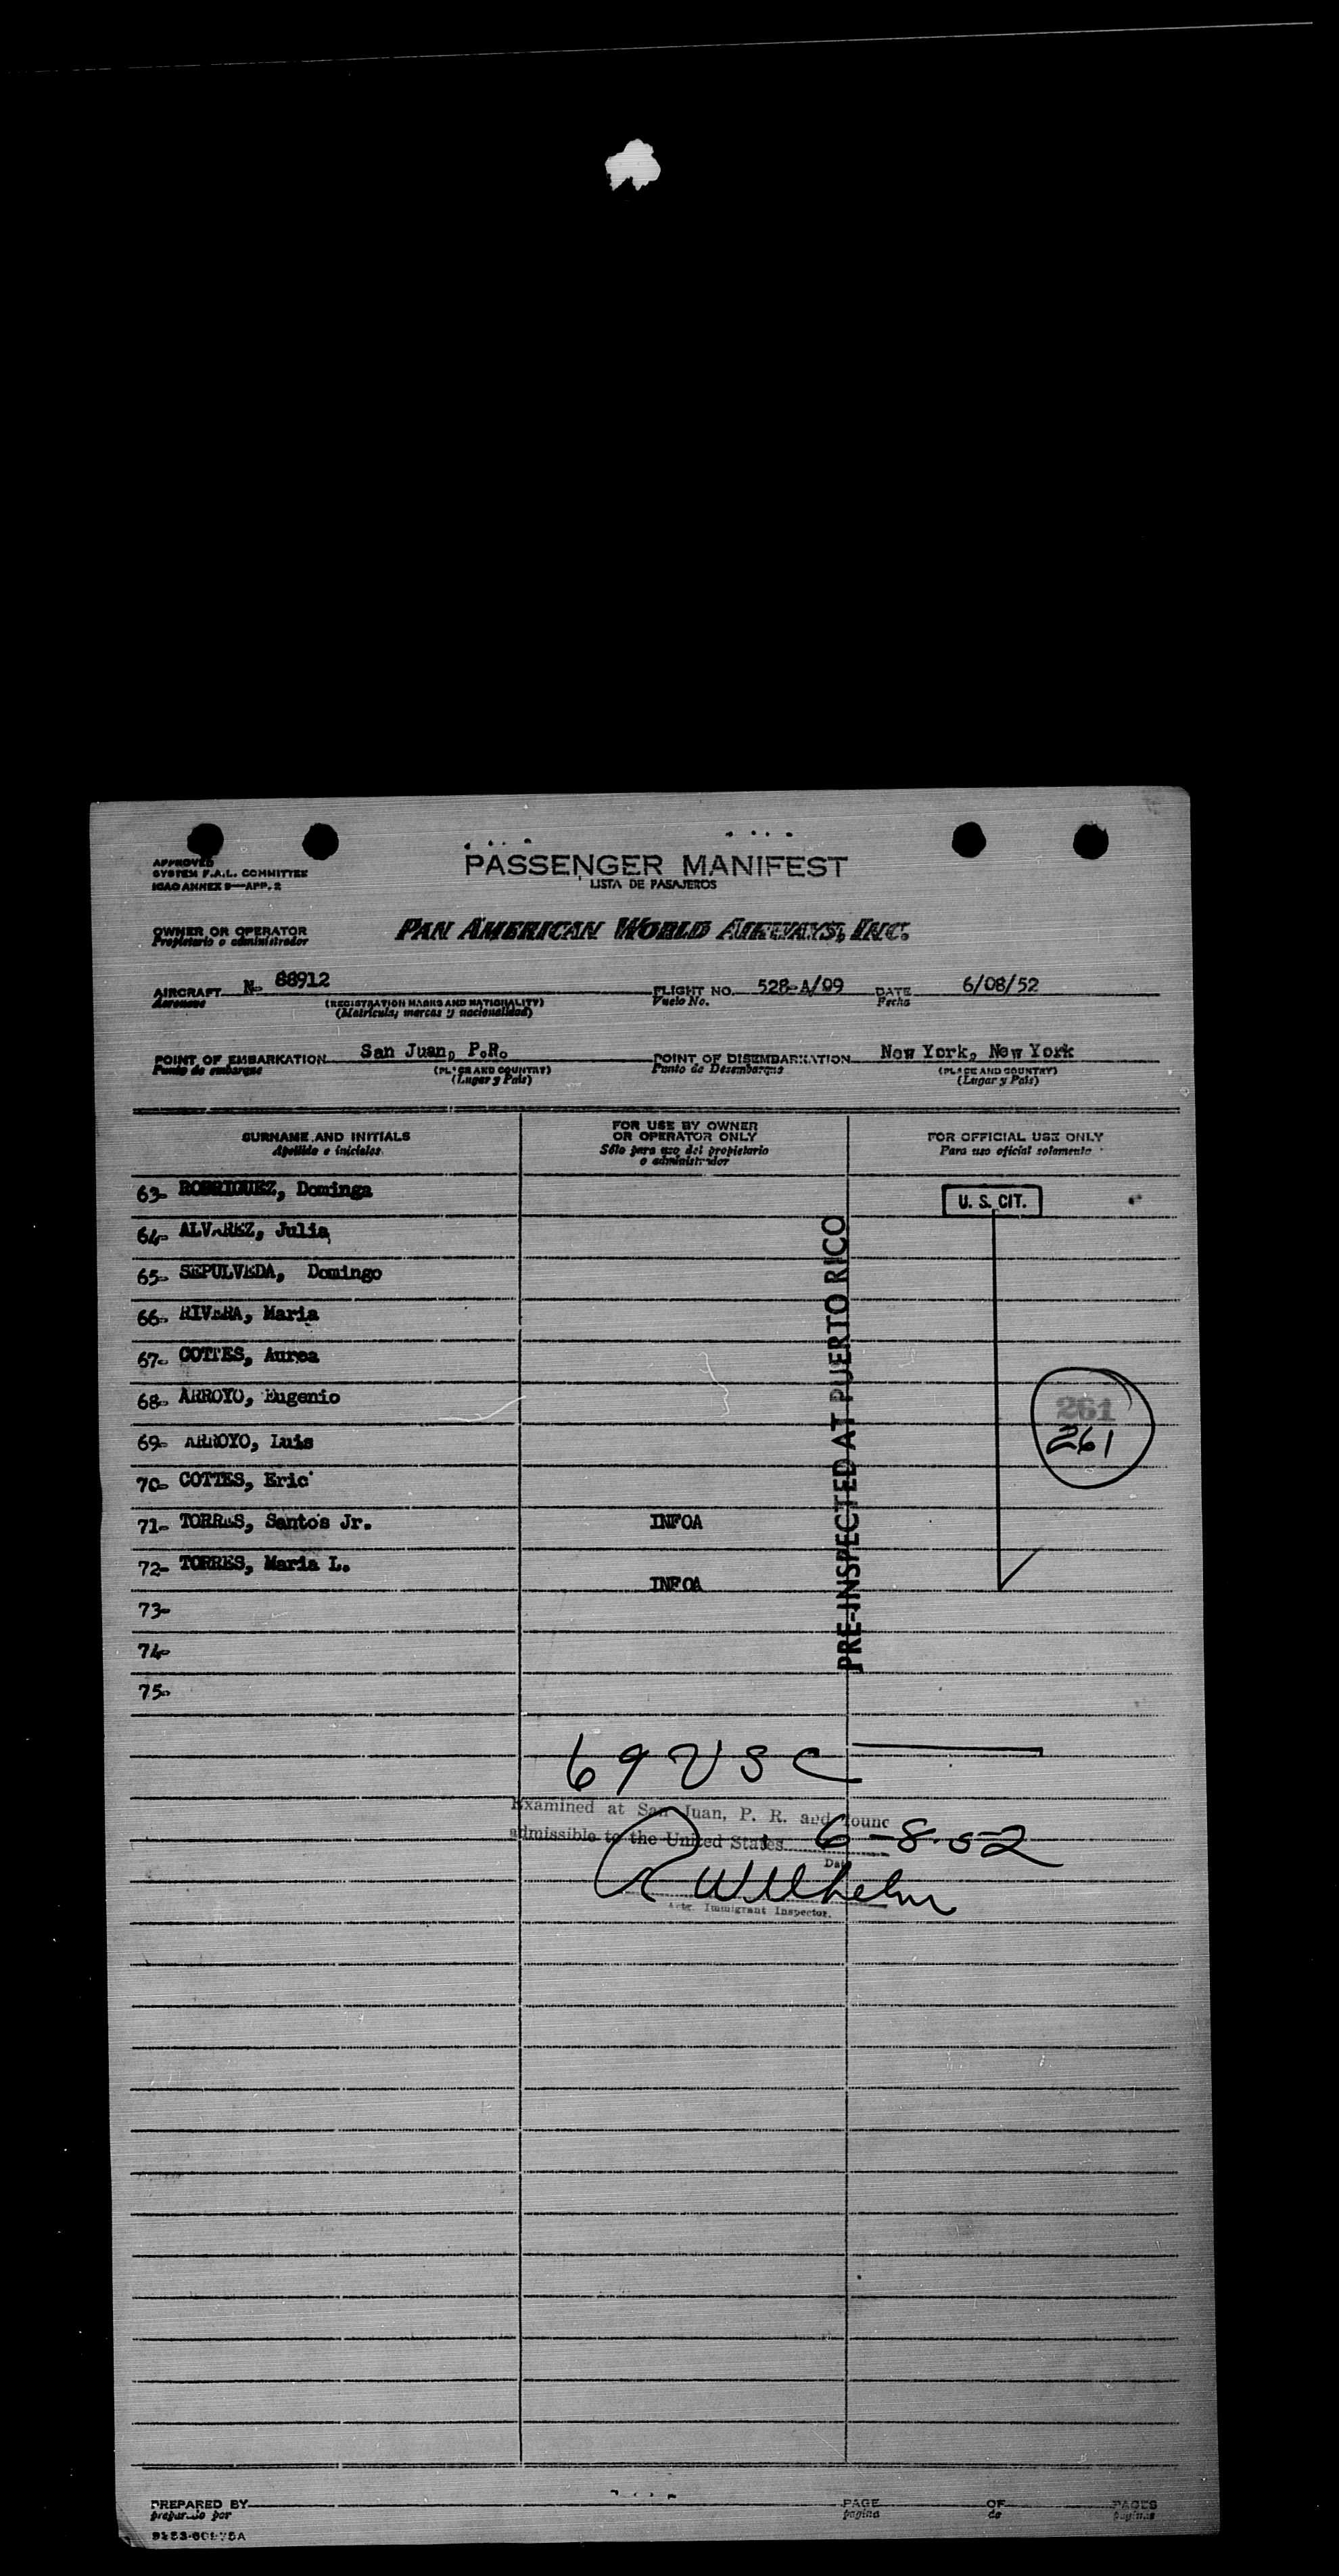 APPROVED
SYSTEM F.A.L. COMMITTEE
ICAO ANNEX 9—APP. 2
PASSENGER MANIFEST
LISTA DE PASAJEROS
OWNER OR OPERATOR
Propietario o administrador
PAN AMERICAN WORLD AIRWAYS, INC.
AIRCRAFT N- 88912
Aeronave
(REGISTRATION MARKS AND NATIONALITY)
(Matricula, marcas y nacionalidad)
FLIGHT NO. 528-A/09
Vuelo No.
DATE 6/08/52
Fecha
POINT OF EMBARKATION San Juan, P.R.
Punto de embarque
(PLACE AND COUNTRY)
(Lugar y Pais)
POINT OF DISEMBARKATION New York, New York
Punto de Desembarque
(PLACE AND COUNTRY)
(Lugar y Pais)
SURNAME AND INITIALS
Apellido e iniciales
FOR USE BY OWNER
OR OPERATOR ONLY
Sólo para uso del propietario
o administrador
FOR OFFICIAL USE ONLY
Para uso oficial solamente
63- RODRIGUEZ, Dominga
U. S. CIT.
64- ALVAREZ, Julia
65- SEPULVEDA, Domingo
66- RIVERA, Maria
67- COTTES, Aurea
68- ARROYO, Eugenio
261
69- ARROYO, Luis
261
70- COTTES, Eric
71- TORRES, Santos Jr. INFOA
72- TORRES, Maria L.
INFOA
73-
74-
75-
PRE-INSPECTED AT PUERTO RICO
69 USC
Examined at San Juan, P. R. and found
admissible to the United States 6-8-52
Date
R Wilhelm
Actg. Immigrant Inspector.
PREPARED BY
preparado por
PAGE
pagina
OF
de
PAGES
paginas